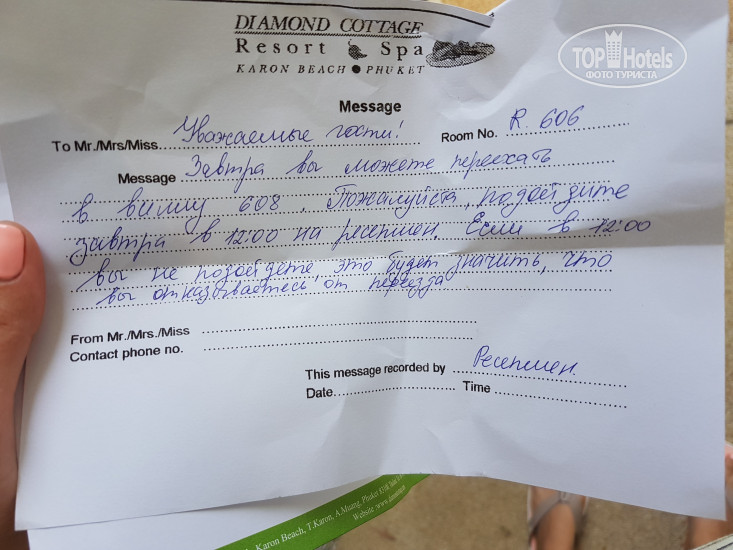 DIAMOND COTTAGE
Resort Spa
KARON BEACH ● PHUKET
TOP Hotels
ФОТО ТУРИСТА
Message
To Mr./Mrs/Miss. Уважаемые гости! Room No. R. 606
Message Завтра вы можете переехать
в виллу 608. Пожалуйста, подойдите
завтра в 12:00 на ресепшен. Если в 12:00
вы не подойдете, это будет значить, что
вы отказываетесь от переезда
From Mr./Mrs./Miss
Contact phone no.
This message recorded by Ресепшен.
Date Time
Karon Beach, T.Karon, A.Muang, Phuket
Website :www.